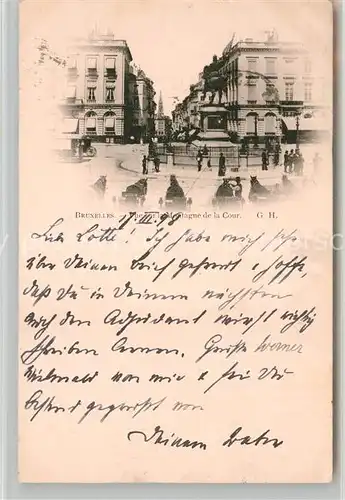 BRUXELLES. — Rue de la Montagne de la Cour. G H.
III. 98
Liebe Lotte! Ich habe mich sehr
über Deinen Brief gefreut & hoffe,
daß Du in Deinem nächsten
auch den Adjudant wirst richtig
schreiben lernen. Grüße Werner
von mir & sei Du
bestens gegrüßt von
Deinem Vater